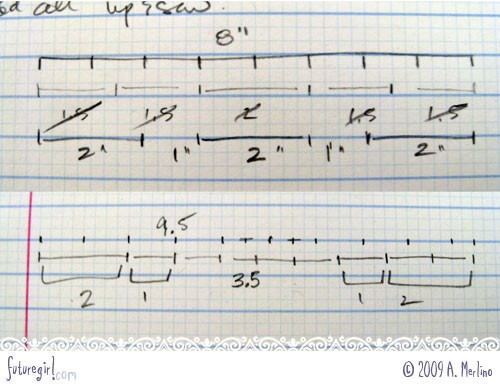 all up & saw.
8"
1.5 1.5 2 1.5 1.5
2" 1" 2" 1" 2"
9.5
3.5
2 1 1 2
futuregirl.com
© 2009 A. Merlino